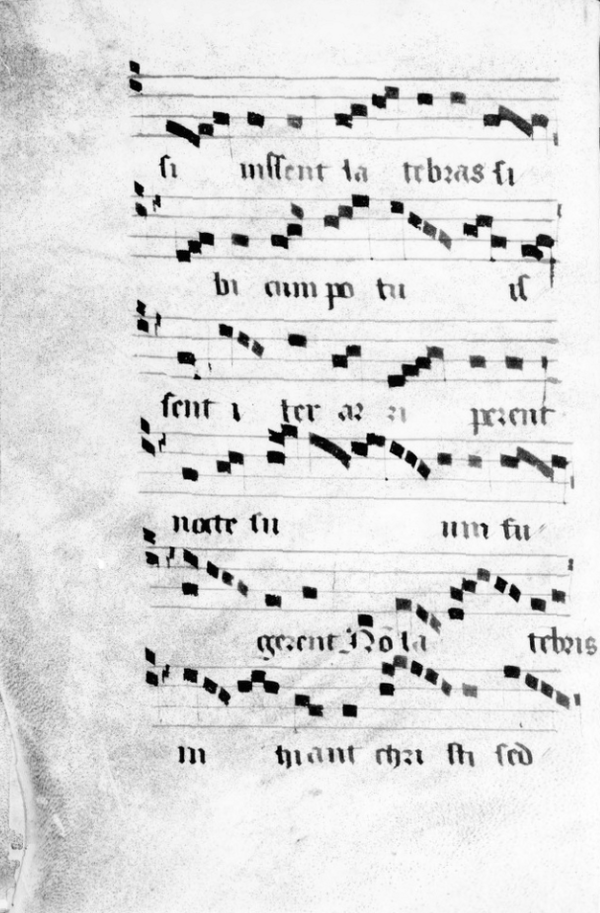 si uissent la tebras si
bi cum po tu is
sent i ter ar ri perent
nocte su um fu
gerent Nō la tebris
in hiant chri sti sed